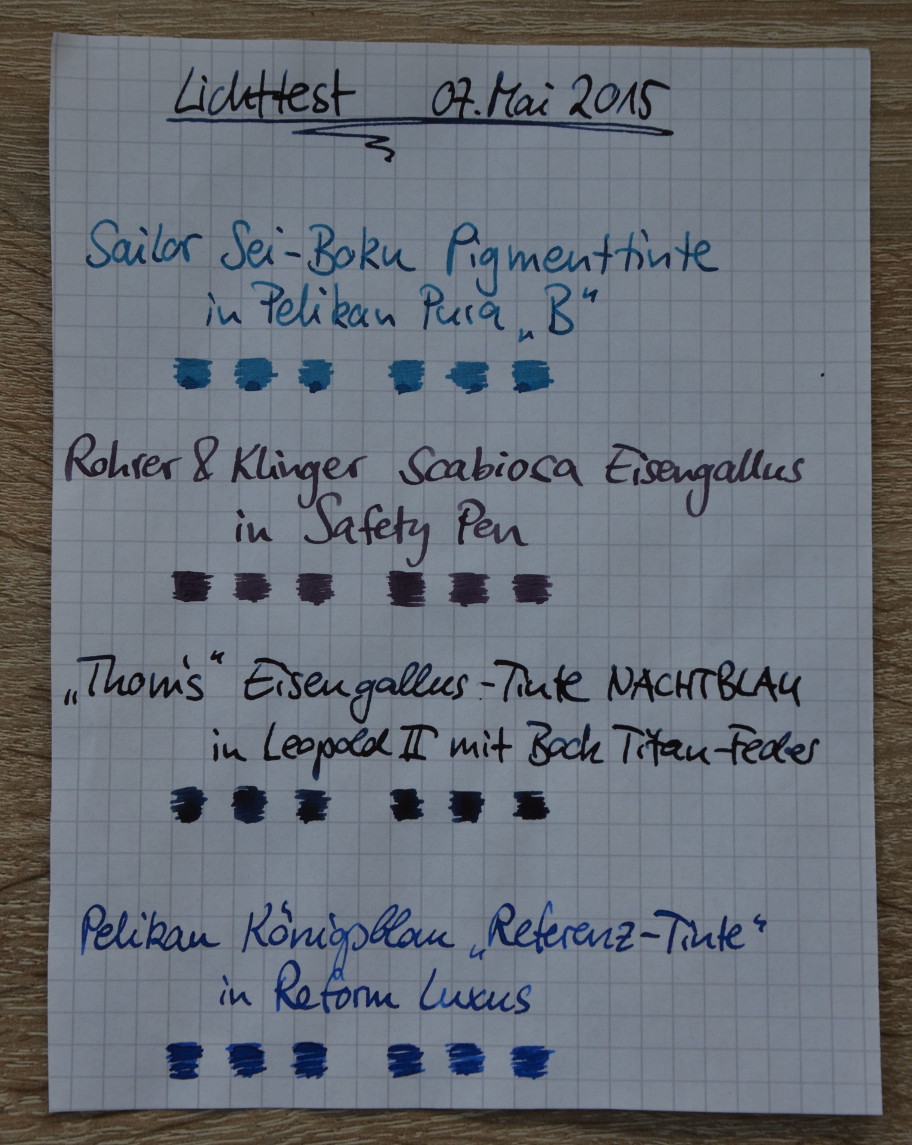 Lichttest 07. Mai 2015
Sailor Sei-Boku Pigmenttinte
in Pelikan Pura „B“
Rohrer & Klinger Scabiosa Eisengallus
in Safety Pen
„Thom's“ Eisengallus-Tinte NACHTBLAU
in Leopold II mit Bock Titan-Feder
Pelikan Königsblau „Referenz-Tinte“
in Reform Luxus